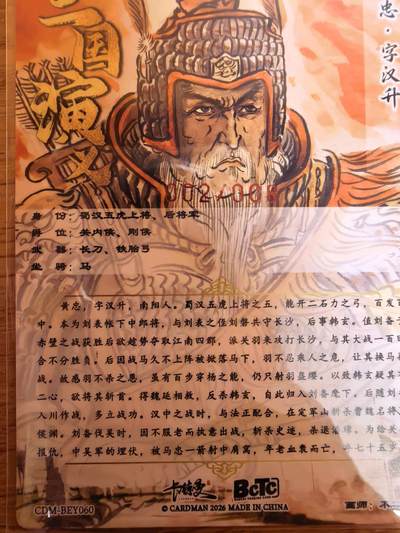 三国演义
忠·字汉升
002/006
身 份：蜀汉五虎上将、后将军
爵 位：关内侯、刚侯
武 器：长刀、铁胎弓
坐 骑：马
黄忠，字汉升，南阳人。蜀汉五虎上将之五，能开二石力之弓，百发百
中。本为刘表帐下中郎将，与刘表之侄刘磐共守长沙，后事韩玄。值刘备于
赤壁之战获胜后欲趁势夺取江南四郡，派关羽来攻打长沙，与其大战一百回
合不分胜负。后因战马久不上阵被掀落马下，羽不忍乘人之危，让其换马再
战。故感羽不杀之恩，虽有百步穿杨之能，仍只射羽盔缨。以致韩玄疑其有
二心，欲将其斩首。得魏延相救，反杀韩玄，自此归入刘备麾下。后随刘备
入川作战，多立战功。汉中之战时，与法正配合，在定军山斩杀曹魏名将夏
侯渊。刘备伐吴时，因不服老而执意出战，斩杀史迹，杀退潘璋。为给关
报仇，中吴军的埋伏，被马忠一箭射中肩窝，年老血衰而亡，年七十五岁
卡特曼 BCTC
© CARDMAN 2026 MADE IN CHINA
CDM-BEY060
画师：不